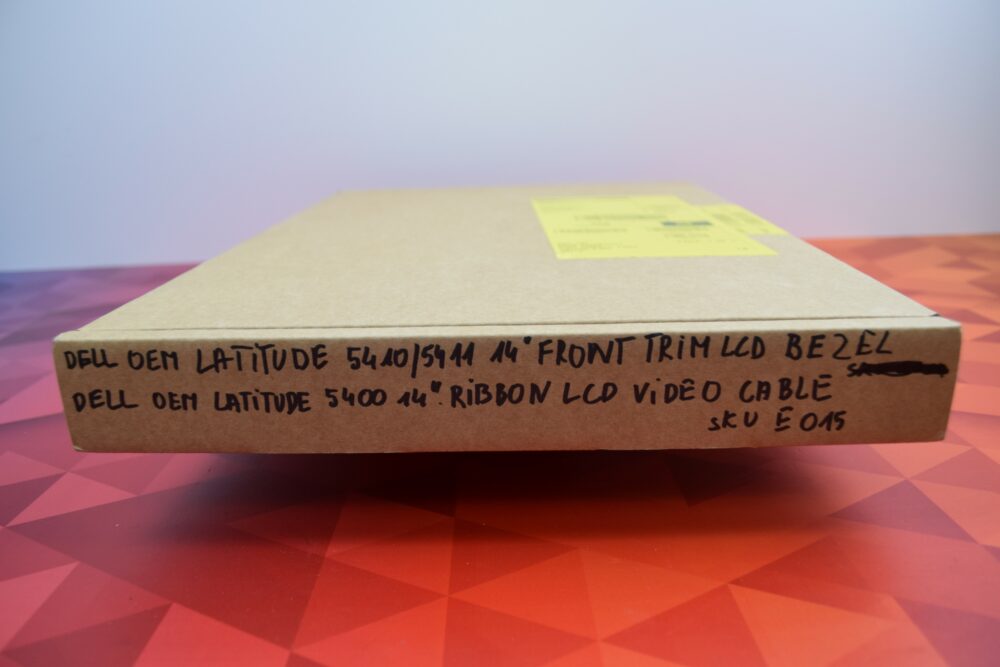 DELL OEM LATITUDE 5410/5411 14" FRONT TRIM LCD BEZEL
DELL OEM LATITUDE 5400 14". RIBBON LCD VIDEO CABLE
SKU E015